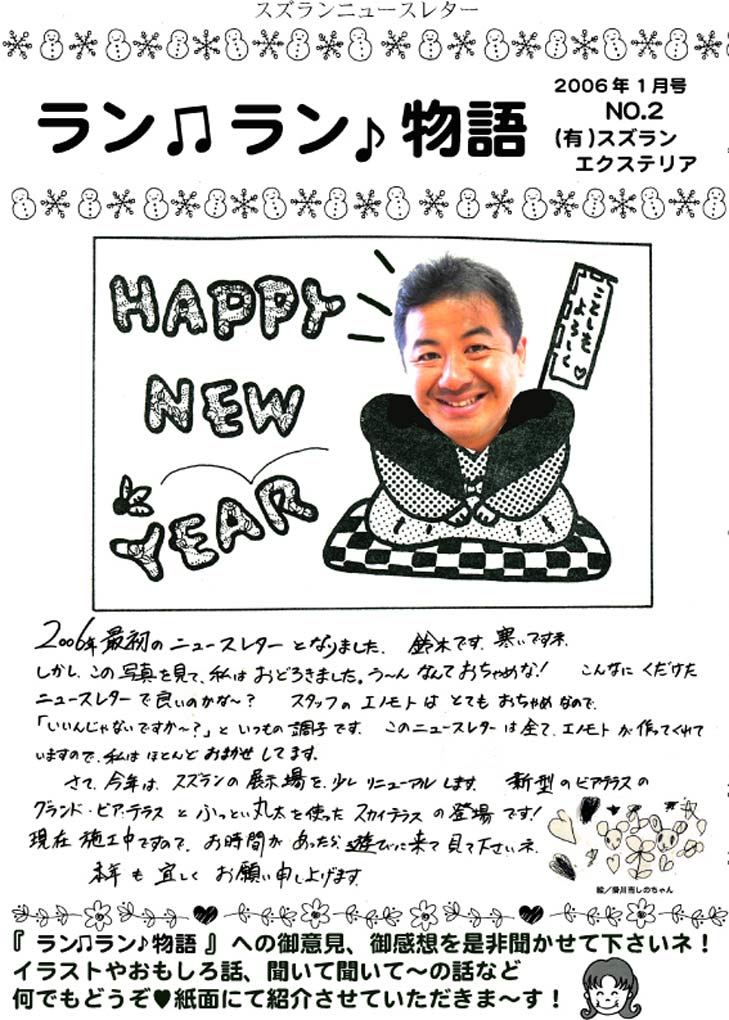 スズランニュースレター
ラン♫ラン♪物語
2006年1月号
NO.2
(有)スズラン
エクステリア
HAPPY
NEW
YEAR
ことしも
よろしく♡
2006年 最初の ニュースレター となりました。 鈴木です。寒いですネ。
しかし、この写真を見て、私は おどろきました。う〜ん なんて おちゃめな! こんなに くだけた
ニュースレターで良いのかな〜? スタッフの エノモトは とても おちゃめ なので、
「いいんじゃないですか〜?」と いつもの 調子です。 このニュースレターは全て、エノモト が 作ってくれて
いますので、私は ほとんど おまかせ してます。
さて、今年は、スズランの 展示場を、少し リニューアル します。 新型の ビアテラスの
グランド・ビア・テラス と ふっとい丸太を使った スカイテラス の 登場です!
現在 施工中ですので、お時間が あったら 遊びに来て 見て下さいネ。
本年 も 宜しく お願い申し上げます。
絵／掛川市しのちゃん
『 ラン♫ラン♪物語 』への御意見、御感想を是非聞かせて下さいネ！
イラストやおもしろ話、聞いて聞いて〜の話など
何でもどうぞ♥紙面にて紹介させていただきま〜す！